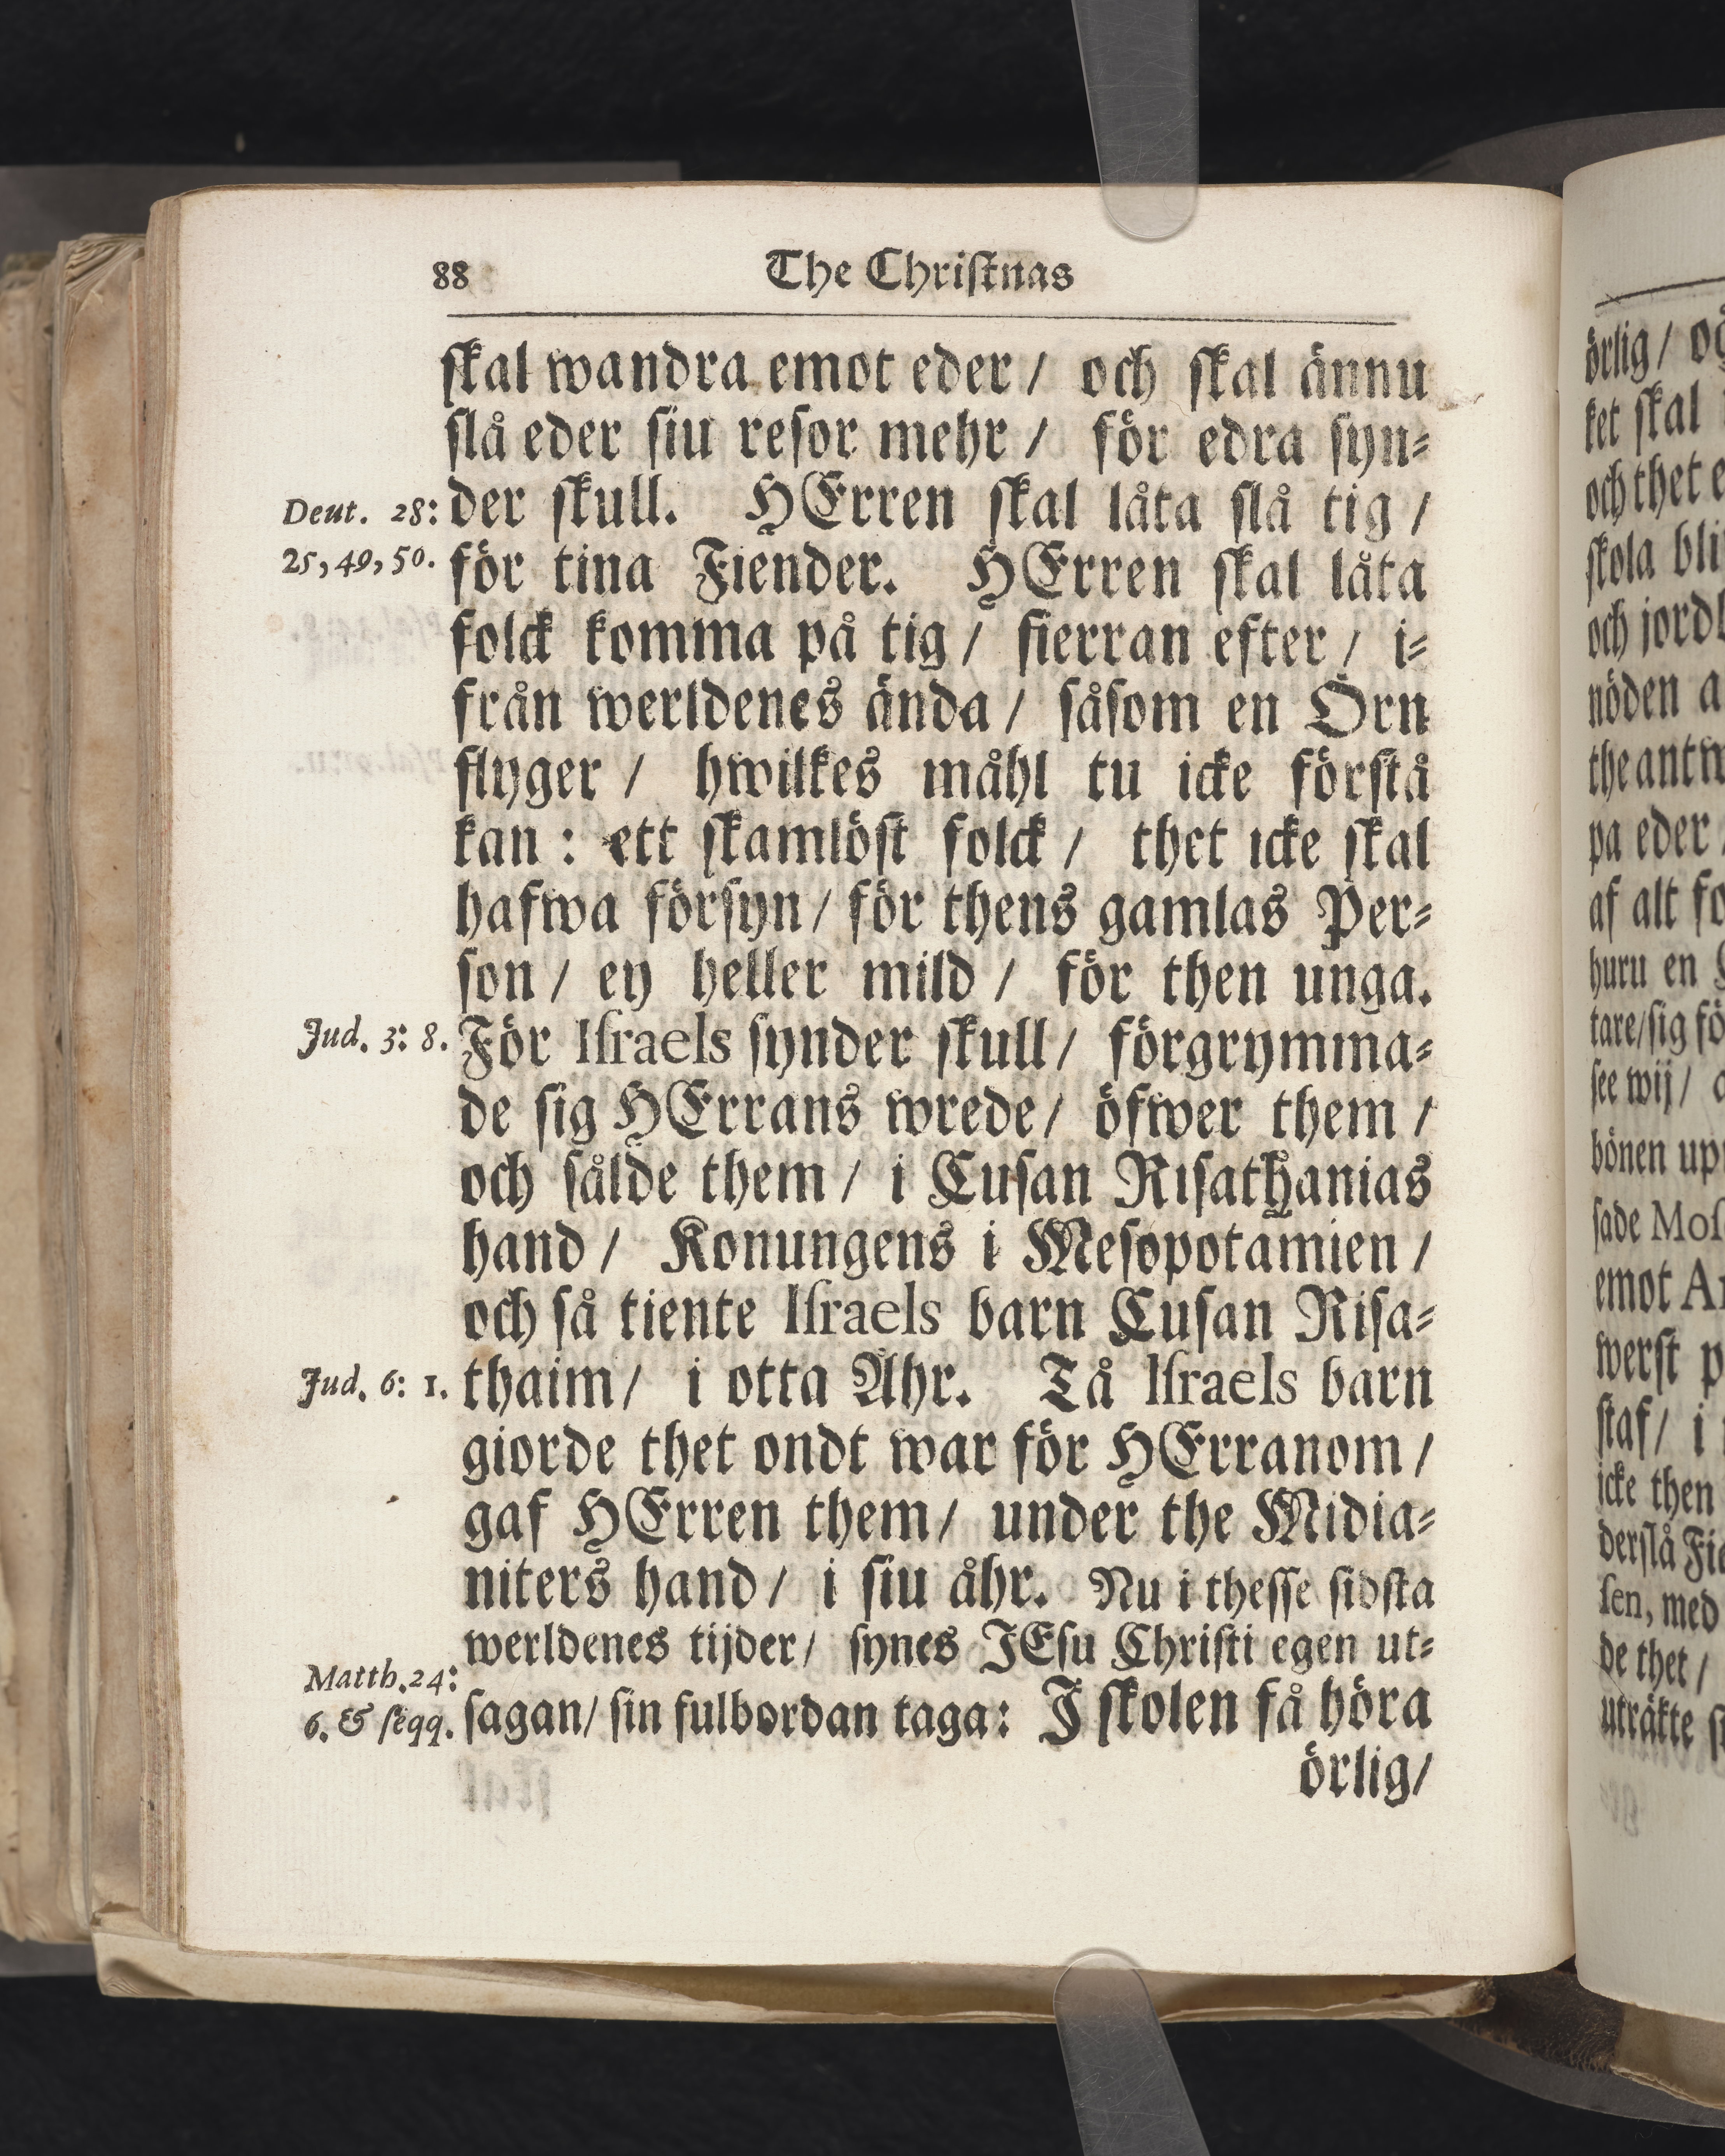 88 The Christnas
skal wandra emot eder / och skal ännu
slå eder siu resor mehr / för edra syn⸗
Deut. 28: der skull. HErren skal låta slå tig /
25, 49, 50. för tina Fiender. HErren skal låta
folck komma på tig / fierran efter / i⸗
från werldenes ända / såsom en Örn
flyger / hwilkes måhl tu icke förstå
kan : ett skamlöst folck / thet icke skal
hafwa försyn / för thens gamlas Per⸗
son / ey heller mild / för then unga.
Jud. 3: 8. För Israels synder skull / förgrymma⸗
de sig HErrans wrede / öfwer them /
och sålde them / i Cusan Risathanias
hand / Konungens i Mesopotamien /
och så tiente Israels barn Cusan Risa⸗
Jud. 6: 1. thaim / i otta Åhr. Tå Israels barn
giorde thet ondt war för HErranom /
gaf HErren them / under the Midia⸗
niters hand / i siu åhr. Nu i thesse sidsta
werldenes tijder / synes JEsu Christi egen ut⸗
Matth. 24: sagan / sin fulbordan taga: J skolen få höra
6. & seqq.
örlig /
örlig /
ket skal
och thet
skola
och
nöden
the
pa eder
af alt
huru en
tare / sig
see wij /
bönen
sade
emot
werst
staf / i
icke then
derslå
sen, med
de thet /
uträkte